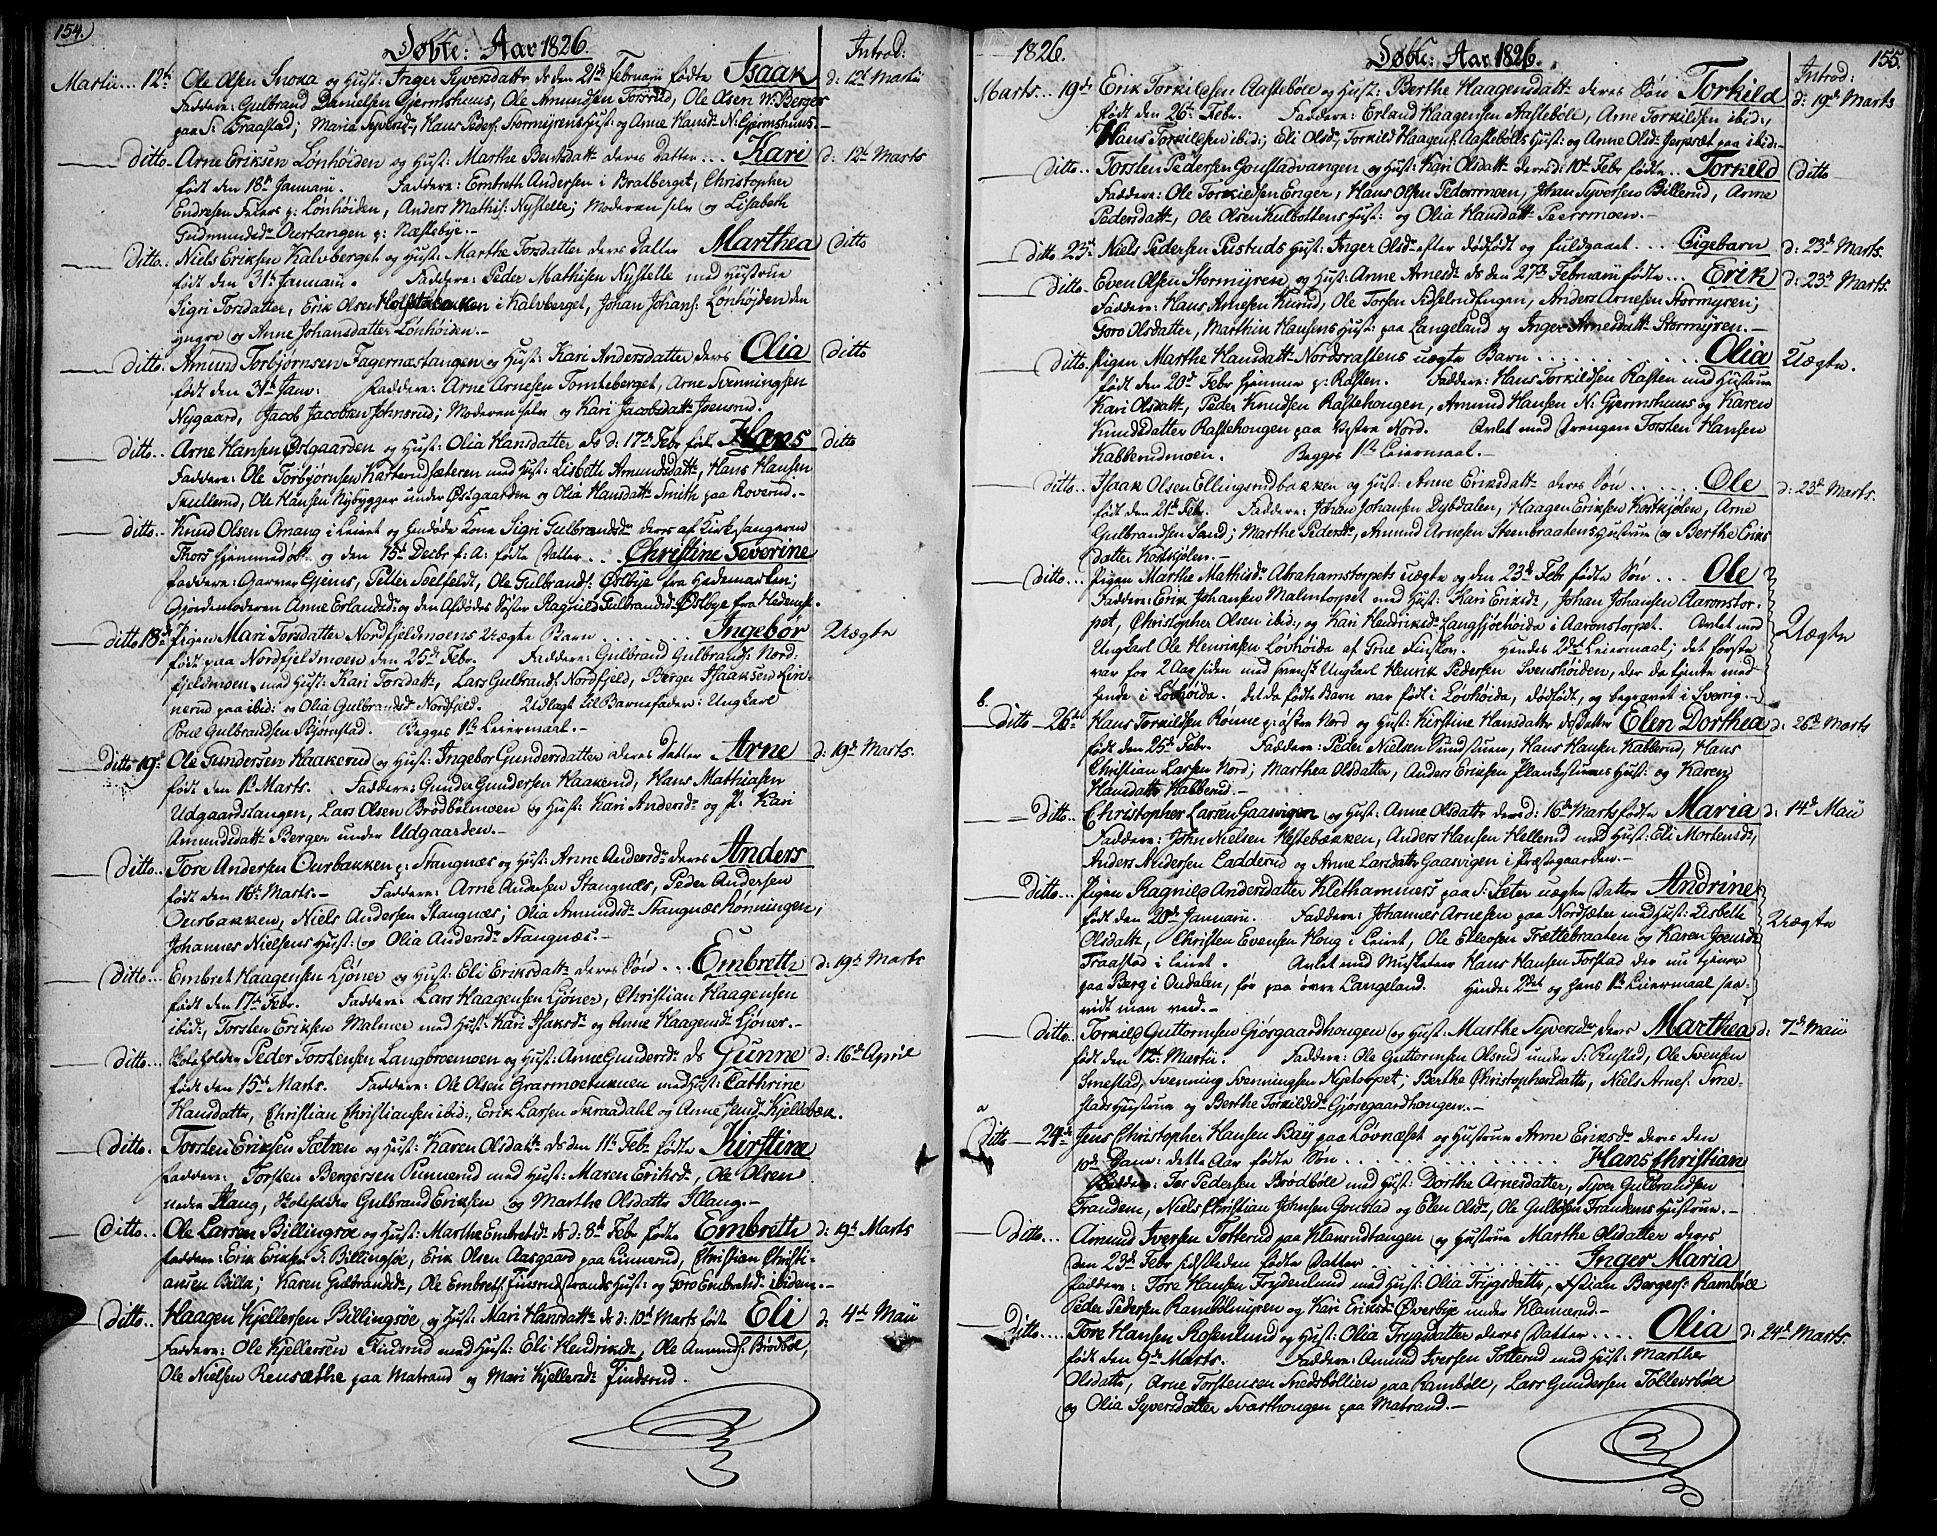 154.)
Døbte: Aar 1826.
Introd:
Martii... 12te Ole Olsen Snoxa og Hust: Inger Syversdattr ds den 21d Februarii fødte Isaak d: 12t Martii
Faddere: Gulbrand Danielsen Gjermshuus, Ole Amundsen Torsrud, Ole Olsen N: Berger
paa S: Braastad; Maria Syversdr, Hans Peders: Stormyrens Hust: og Anne Hansdr N: Gjermshuus.-
ditto- Arne Eriksen Lønhøiden og Hust: Marthe Bentsdattr deres Datter... Kari d: 12te Marts
født den 18d Januarii. Faddere: Embreth Andersen i Bralberget, Christopher
Endresen Feiers p: Lønhøiden, Anders Mathis: Nystelle; Moderen selv og Lisabeth
Gudmundsdr Ourtangen p: Næstebye.-
ditto. Niels Eriksen Kalvberget og Hust: Marthe Torsdatter deres Datter Marthea ditto
født den 31te Januarii. Faddere: Peder Mathisen Nystelle med Hustrue
Sigri Torsdatter, Erik Olsen i Kalvberget, Johan Johans: Lønhøiden den
yngre og Anne Johansdatter Lønhøiden.-
ditto. Amund Torbjørnsen Fagernæstangen og Hust: Kari Andersdatter deres Olia ditto
født den 31te Janv. Faddere: Arne Arnesen Tomteberget, Arne Svenningsen
Nygaard, Jacob Jacobsen Johnsrud; Moderen selv og Kari Jacobsdattr Joensrud.
ditto.. Arne Hansen Østgaarden og Hust: Olia Hansdatter ds d: 17d Febr født Hans ditto
Faddere: Ole Torbjørnsen Karterudsæteren med Hust: Lisbeth Amundsdattr, Hans Hansen
Skullerud, Ole Hansen Nybygger under Østgaarden og Olia Hansdattr Smith paa Roverud.-
ditto... Knud Olsen Omang i Leiret og hendøde Kone Sigri Gulbrandsdr deres af Kirkesangeren
Thors hjemmedøbte og den 15d Decbr f: A: fødte Datter... Christine Severine
Faddere: Garver Gjems, Petter Soelfeldt, Ole Gulbrands: Østbye fra Hedemarken;
Gjordemoderen Anne Erlandsdr og den Afdødes Søster Ragnild Gulbrandsdr Østbye fra Hedemk.
ditto 18d Pigen Mari Torsdatter Nordfjeldmoens Uægte Barn ....... Ingebor Uægte
født paa Nordfjeldmoen den 25d Febr. Faddere: Gulbrand Gulbrands: Nord:
fjeldmoen med Hust: Kari Torsdattr, Lars Gulbrands: Nordfjeld, Berger Isaksen Lin-
nerud paa ibid: og Olia Gulbrandsdr Nordfjeld. Udlagt til Barnefader: Ungkarl
Poul Gulbrandsen Bjørnstad. Begges 1te Leiermaal.-
Ditto 19d Ole Gundersen Haakerud og Hust: Ingebor Gundersdatter deres Datter Arne d: 19d Marts.
født den 1te Marts. Faddere: Gunder Gundersen Haakerud, Hans Mathiasen
Udgaardstangen, Lars Olsen Brødbølmoen og Hust: Kari Andersdr og P: Kari
Amundsdattr Berger under Udgaarden.-
ditto.. Tore Andersen Ourbakken p: Stangnæs og Hust: Anne Andersdr deres Anders
født den 16de Marts.- Faddere: Arne Andersen Stangnæs, Peder Andersen
Ourbakken, Niels Andersen Stangnæs; Olia Amundsdr Stangnæs Ronningen,
Johannes Nielsens Hust: og Olia Andersdr Stangnæs.-
ditto.. Embret Haagensen Ljøner og Hust: Eli Eriksdattr deres Søn ... Embreth d: 19d Marts
født den 17de Febr. Faddere: Lars Haagensen Ljøner, Christian Haagensen
ibid:, Torsten Eriksen Malmer med Hust: Kari Isaksdr og Anne Haagensdr Ljøner.-
ditto... Peder Torstensen Langbroemoen og Hust: Anne Gundersdr ds Gunne d: 16d April
født den 15d Marts. Faddere: Ole Olsen Grarmoetuknen med Hust: Cathrine
Hansdattr, Christian Christiansen ibid:, Erik Larsen Skraadahl og Anne Jensdr Kjellebæk.
ditto. Torsten Eriksen Sætren og Hust: Karen Olsdattr ds den 11te Febr fødte Kirstine
Faddere: Torsten Bergersen Punnerud med Hust: Maren Eriksdr, Ole Olsen
nedre Ilang, Gulbrand Eriksen og Marthe Olsdattr Ilang.-
ditto.. Ole Larsen Billingsøe og Hust: Marthe Embretsdr ds d: 8d Febr fødte Embreth d: 19d Marts
Faddere: Erik Eriksen S: Billingsøe, Erik Olsen Aasgaard paa Linnerud, Christian Christi-
ansen Billa; Karen Gulbrandsdr, Ole Embrets: Finsrudstrands Hust: og Goro Embretsdr ibidem.-
ditto.. Haagen Kjellersen Billingsøe og Hust: Mari Hansdattr ds d: 10d Marts fødte Eli d: 4d Maii
Faddere: Ole Kjellersen Findsrud med Hust: Eli Hendriksdr, Ole Amunds: Brødbøl,
Ole Nielsen Rensæthe paa Matrand og Mari Kjellersdr Findsrud.
155.
1826. Døbte: Aar 1826. Introd:
Marts... 19d Erik Torkildsen Aastebøle og Hust: Berthe Haagensdattr deres Søn Torkild d: 19d Marts
født den 26te Feb. Faddere: Erland Haagensen Aastebøle, Arne Torkildsen ibid:,
Hans Torkildsen ibid; Eli Olsdr, Torkild Haagens: Aastebøls Hust: og Anne Olsdr Jerpsæt paa ibid:-
ditto.. Torsten Pedersen Goustadvangen og Hust: Kari Olsdattr deres d: 10d Febr fødte.. Torkild Ditto
Faddere: Ole Torkildsen Enger, Hans Olsen Pedersmoen, Johan Syversen Billerud, Anne
Pedersdattr, Ole Olsen Kulbottens Hust: og Olia Hansdattr Peersmoen.-
ditto 25d Niels Pedersen Pustuds Hust: Inger Olsdr efter dødfødt og fuldgaaet ... Pigebarn d: 23d Marts.
ditto. Even Olsen Stormyren og Hust: Anne Arnesdr ds den 27d Februarii fødte... Erik d: 23d Marts.
Faddere: Hans Arnesen Kurud, Ole Torsen Sidselrudengen, Anders Arnesen Stormyren;
Goro Olsdatter, Marthin Hansens Hust: paa Langeland og Inger Arnesdattr Stormyren.-
ditto. Pigen Marthe Hansdattr Nordrastens uægte Barn .............. Olia Uægte.
født den 20d Febr hjemme p: Rasten. Faddere: Hans Torkildsen Rasten med Hustrue
Kari Olsdattr, Peder Knudsen Rastehougen, Amund Hansen N: Gjermshuus og Karen
Knudsdatter Rastehougen paa Vestre Nord. Avlet med Drengen Torsten Hansen
Kabberudmoen. Begges 1te Leiermaal.-
ditto.. Isaak Olsen Ellingsrudbakken og Hust: Anne Eriksdattr deres Søn ...... Ole d: 23d Marts.
født den 21d Febr. Faddere: Johan Johansen Dybdalen, Haagen Eriksen Kostkjølen, Arne
Gulbrandsen Sand; Marthe Pedersdr, Amund Arnesen Steenbraatens Hustrue og Berthe Eriks
datter Kostkjølen.-
ditto... Pigen Marthe Mathisdr Abrahamstorpets uægte og den 23d Febr fødte Søn ... Ole Uægte
Faddere: Erik Johansen Malmtorpet med Hust: Kari Eriksdr, Johan Johansen Aaronstor-
pet, Christopher Olsen ibid:, og Kari Hendriksdr Langsjøehøida i Aaronstorpet. Avlet med
Ungkarl Ole Henriksen Lovhøida af Grue Finskov. Hendes 2det Leiermaal; det første
var for 2 Aar siden med svensk Ungkarl Henrik Pedersen Svenshøiden, der da tjente med
hende i Lovhøida. Det da fødte Barn var født i Lovhøida, dødfødt, og begravet i Sverrig.-
b.
ditto- 26te Hans Torkildsen Rønne p: østre Nord og Hust: Kirstine Hansdattr ds Datter Elen Dorthea d: 26d Marts
født den 25d Febr. Faddere: Peder Nielsen Sundstuen, Hans Hansen Kabberud, Hans
Christian Larsen Nord; Marthea Olsdatter, Anders Eriksen Plankstuens Hust: og Karen
Hansdattr Kabberud.-
ditto.. Christopher Larsen Gaasvigen og Hust: Anne Olsdattr deres d: 16d Marts fødte Maria d: 14d Maii
Faddere: John Nielsen Hestebækken, Anders Hansen Hellerud med Hust: Eli Mortensdr,
Anders Andersen Ladderud og Anne Larsdattr Gaasvigen i Præstegaarden.-
Ditto... Pigen Ragnild Andersdatter Klethammers paa S: Sæter uægte Datter Andrine Uægte
født den 20d Januarii. Faddere: Johannes Arnesen paa Nordsæter med Hust: Lisbeth
Olsdattr, Christen Evensen Houg i Leiret, Ole Ellefsen Trættebraaten og Karen Joensdr
Traastad i Leiret. Avlet med Musketeer Hans Hansen Torstad der nu tjener
paa Berg i Oudalen, før paa øvre Langeland. Hendes 2det og hans 1te Leiermaal saa-
vidt man veed.-
Ditto. Torkild Guttormsen Gjøsgaardhougen og Hust: Marthe Syversdr deres Marthea d: 7d Maii
født den 12te Martii. Faddere: Ole Guttormsen Olsrud under S: Rustad, Ole Svensen
Smestad, Svenning Svenningsen Nyetorpet; Berthe Christophersdattr, Niels Arnes: Sme-
stads Hustrue og Berthe Torkildsdr Gjøsegaardhougen.-
a
Ditto- 24de Jens Christopher Hansen Baÿ paa Lovnæset og Hustrue Arne Eriksdr deres den
10d Janv: dette Aar fødte Søn .............. Hans Christian
Faddere: Tor Pedersen Brødbøle med Hust: Dorthe Arnesdatter, Syver Gulbrandsen
Traudem, Niels Christian Johnsen Goustad og Elen Olsdr, Ole Gulbrs: Traudems Hustrue.-
Ditto... Amund Iversen Totterud paa Klanrudtangen og Hustrue Marthe Olsdatter deres
den 23d Febr sidstleden fødte Datter ............ Inger Maria
Faddere: Tore Hansen Frydenlund med Hust: Olia Trygsdattr, Kristian Bergers: Rambøle
Peder Pedersen Rambølmyren og Kari Eriksdr Øverbye under Klanerud.-
Ditto.... Tore Hansen Rosenlund og Hust: Olia Trygsdatter deres Datter .... Olia d: 24d Marts.
født den 9de Marts. Faddere: Amund Iversen Totterud med Hust: Marthe
Olsdattr, Arne Torstensen Snedsbøllien paa Rambøll, Lars Gundersen Tollevsbøle
og Olia Syversdatter Svarthougen paa Matrand.-